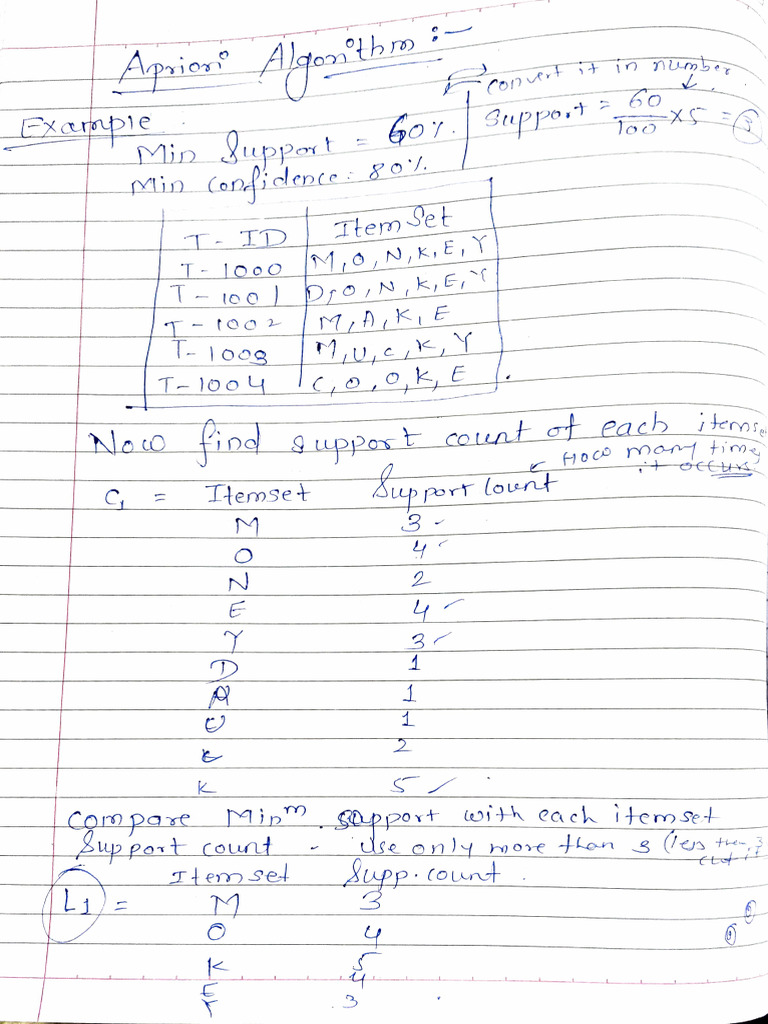 Apriori Algorithm :-
convert it in number
Example
Min Support = 60%.
Support = 60/100 X5 = 3
Min confidence: 80%.
T-ID ItemSet
T-1000 M,O,N,K,E,Y
T-1001 D,O,N,K,E,Y
T-1002 M,A,K,E
T-1003 M,U,C,K,Y
T-1004 C,O,O,K,E
Now find support count of each itemse
How many time
it occurs
C1 = Itemset Support Count
M 3
O 4
N 2
E 4
Y 3
D 1
A 1
U 1
C 2
K 5
Compare Minm. support with each itemset
Support count - Use only more than 3 (less then 3
L1 = Itemset Supp. count
M 3
O 4
K 5
E 4
Y 3